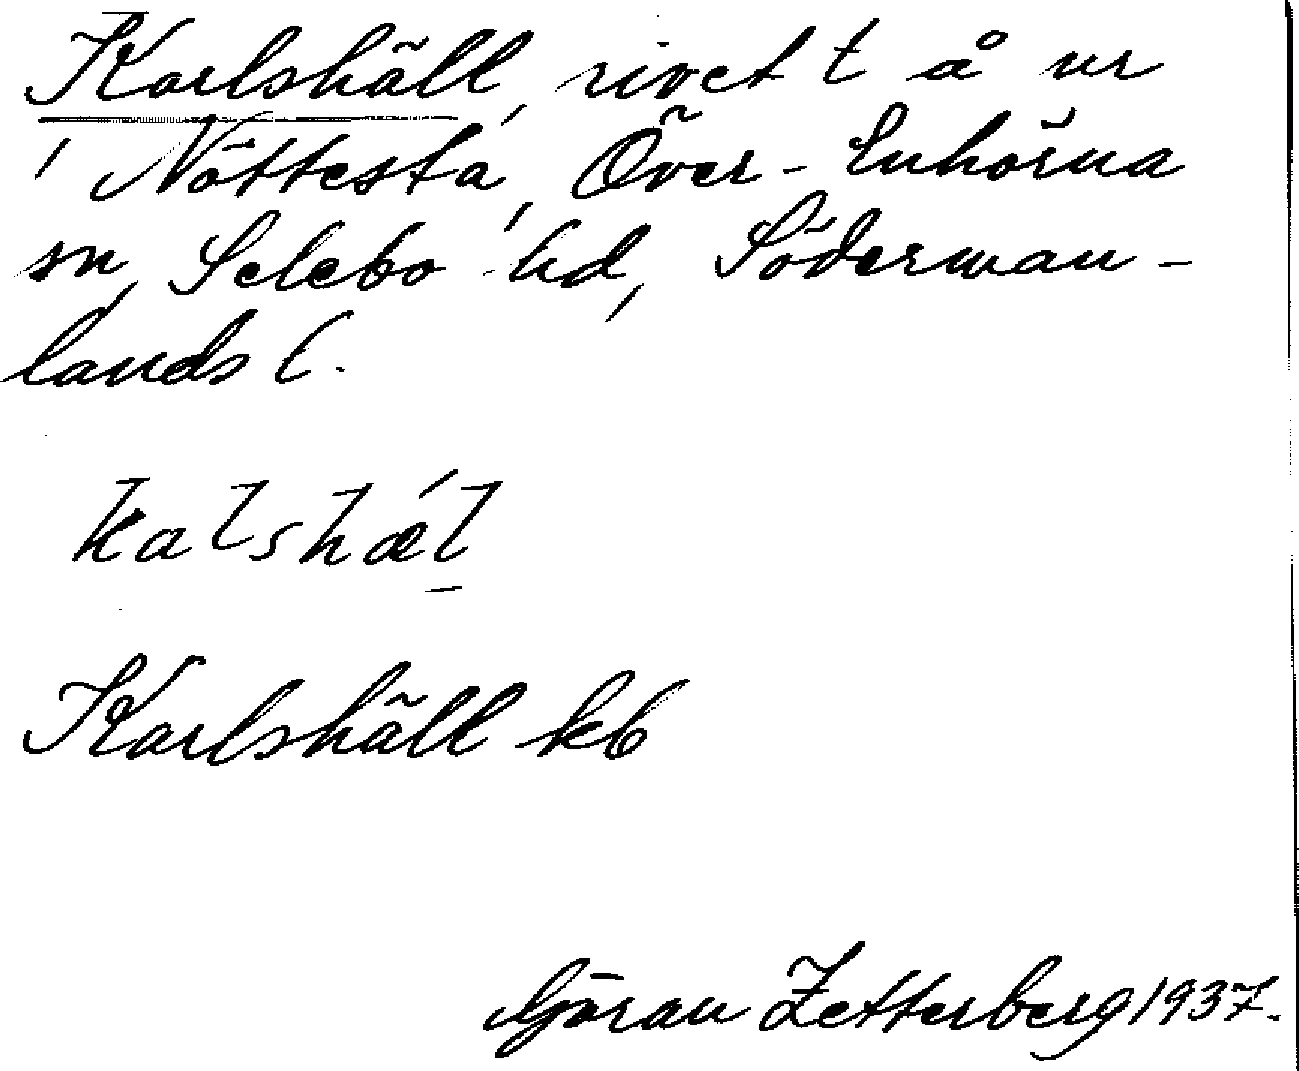 Karlshäll, rivet t å ur
i Nöttesta, Över-Enhörna
sn, Selebo hd, Söderman-
lands l.
kalshǽl
Karlshäll kb
Göran Zetterberg 1937.